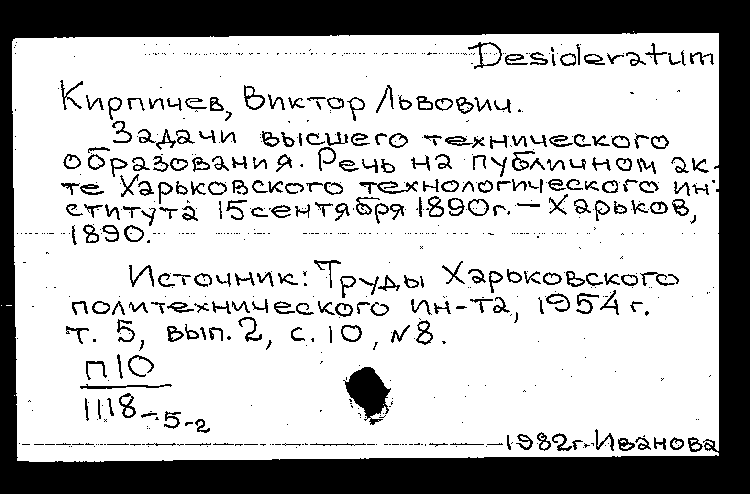 Desideratum
Кирпичев, Виктор Львович.
Задачи высшего технического
образования. Речь на публичном ак-
те Харьковского технологического ин-
ститута 15 сентября 1890г. — Харьков,
1890.
Источник: Труды Харьковского
политехнического ин-та, 1954 г.
т. 5, вып. 2, с. 10, N8.
П10
1118-5-2
1982г. Иванова